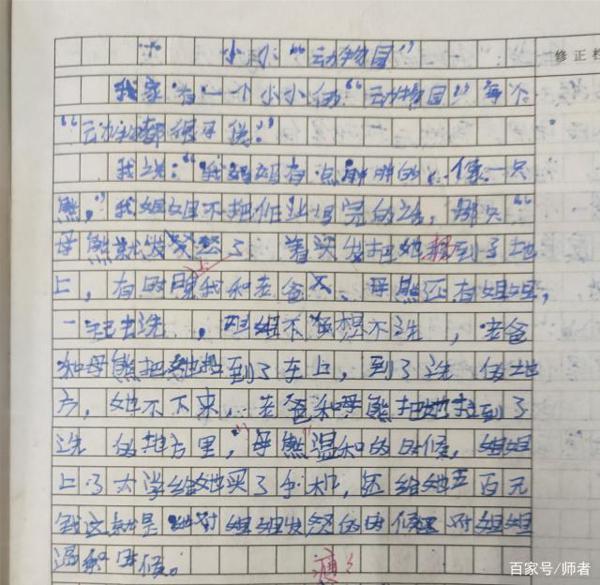 小小“动物园”
修正栏
我家有一个小小的“动物园”每个
“动物都很可爱。”
我先说：“我妈妈有点胖胖的，像一只
熊，”我姐姐不把作业写完的话，那只“
母熊就发怒了 着头发把她 到了地
上，有时候我和老爸 、母熊还有姐姐，
一起去洗 ，姐姐不 想不洗 ，老爸
和母熊把她拉到了车上，到了洗 的地
方，她不下来，老爸和母熊把她拉到了
洗 的地方里，“母熊”温和的时候，姐姐
上了大学给她买了手机，还给她五百元
钱这就是她对姐姐发怒的时候 对姐姐
温和时候。
百家号/师者